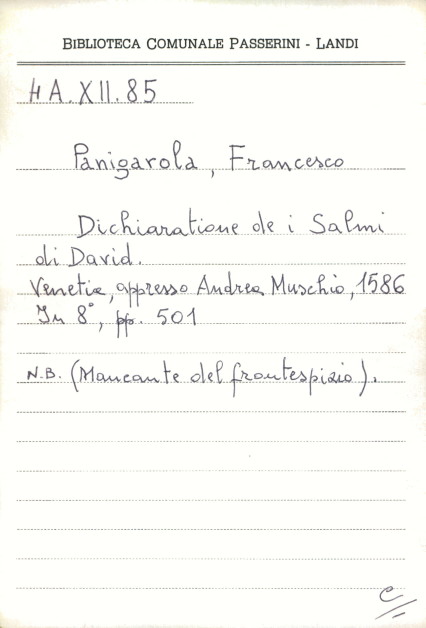 BIBLIOTECA COMUNALE PASSERINI - LANDI
4A.XII.85
Panigarola, Francesco
Dichiaratione de i Salmi
di David.
Venetia, appresso Andrea Muschio, 1586
In 8°, pp. 501
N.B. (Mancante del frontespizio).
C